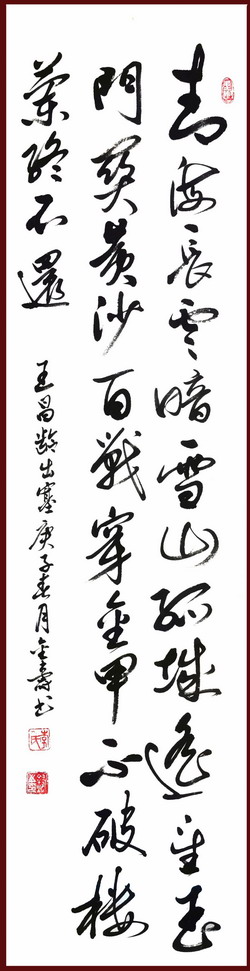 青海長雲暗雪山孤城遙望玉
門關黃沙百戰穿金甲不破樓
蘭終不還
王昌齡出塞庚子春月金壽书